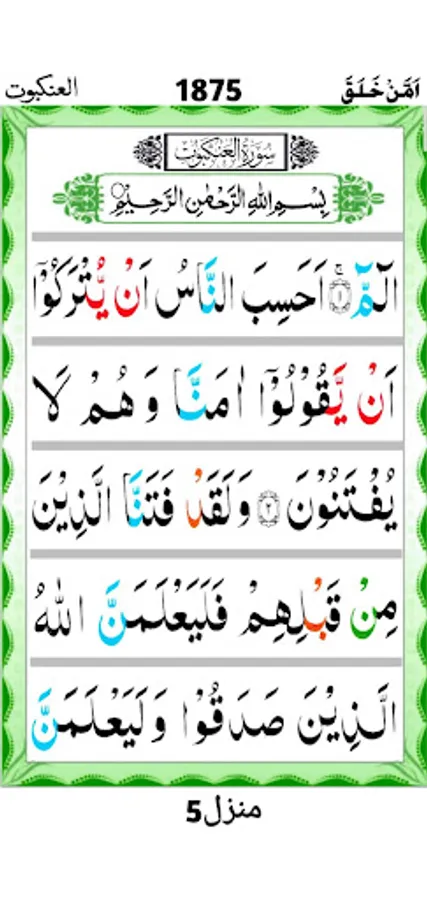 العنكبوت 1875 اَمَّنْ خَلَقَ
سُوْرَةُ الْعَنْكَبُوْتِ
بِسْمِ اللهِ الرَّحْمٰنِ الرَّحِيْمِ
الٓمّٓ ۚ﴿۱﴾ اَحَسِبَ النَّاسُ اَنْ يُّتْرَكُوْۤا
اَنْ يَّقُوْلُوْۤا اٰمَنَّا وَهُمْ لَا
يُفْتَنُوْنَ ﴿۲﴾ وَلَقَدْ فَتَنَّا الَّذِيْنَ
مِنْ قَبْلِهِمْ فَلَيَعْلَمَنَّ اللهُ
الَّذِيْنَ صَدَقُوْا وَلَيَعْلَمَنَّ
منزل5